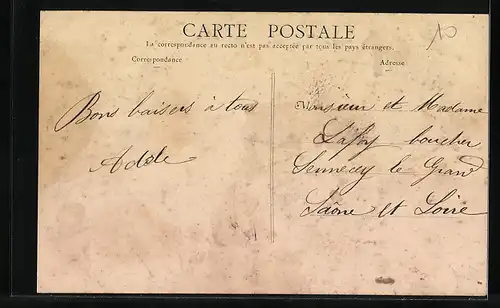 CARTE POSTALE
La correspondance au recto n'est pas acceptée par tous les pays étrangers.
Correspondance
Adresse
10
Bons baisers à tous
Adèle
Monsieur et Madame
Lafoy boucher
Sennecey le Grand
Saône et Loire